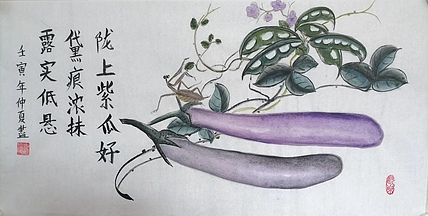 陇上紫瓜好
黛痕浓抹
露实低悬
壬寅年仲夏